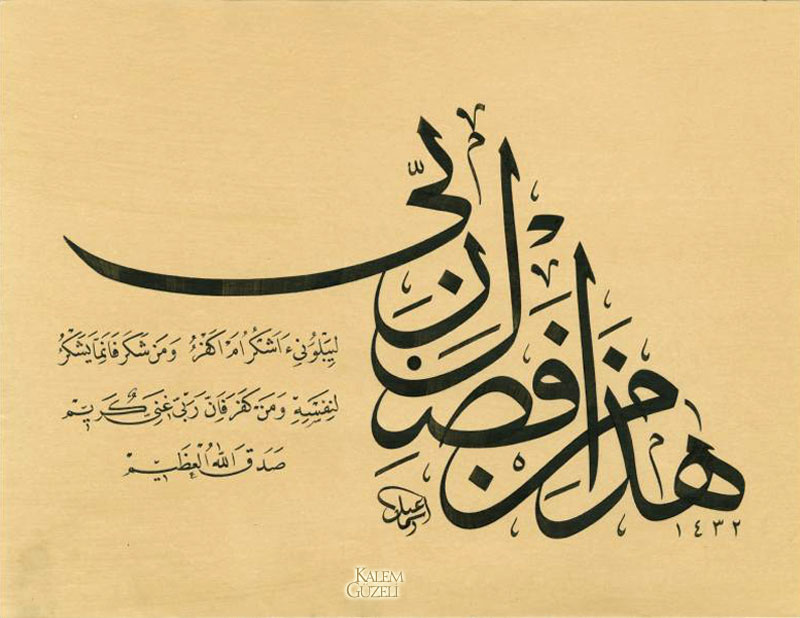 هذا من فضل ربى
لِيَبْلُوَنِى ءَاَشْكُرُ اَمْ اَكْفُرُ وَمَنْ شَكَرَ فَاِنَّمَا يَشْكُرُ
لِنَفْسِهِ وَمَنْ كَفَرَ فَاِنَّ رَبِّى غَنِىٌّ كَرِيمٌ
صَدَقَ اللهُ الْعَظِيمُ
١٤٣٢
KALEM
GÜZELİ